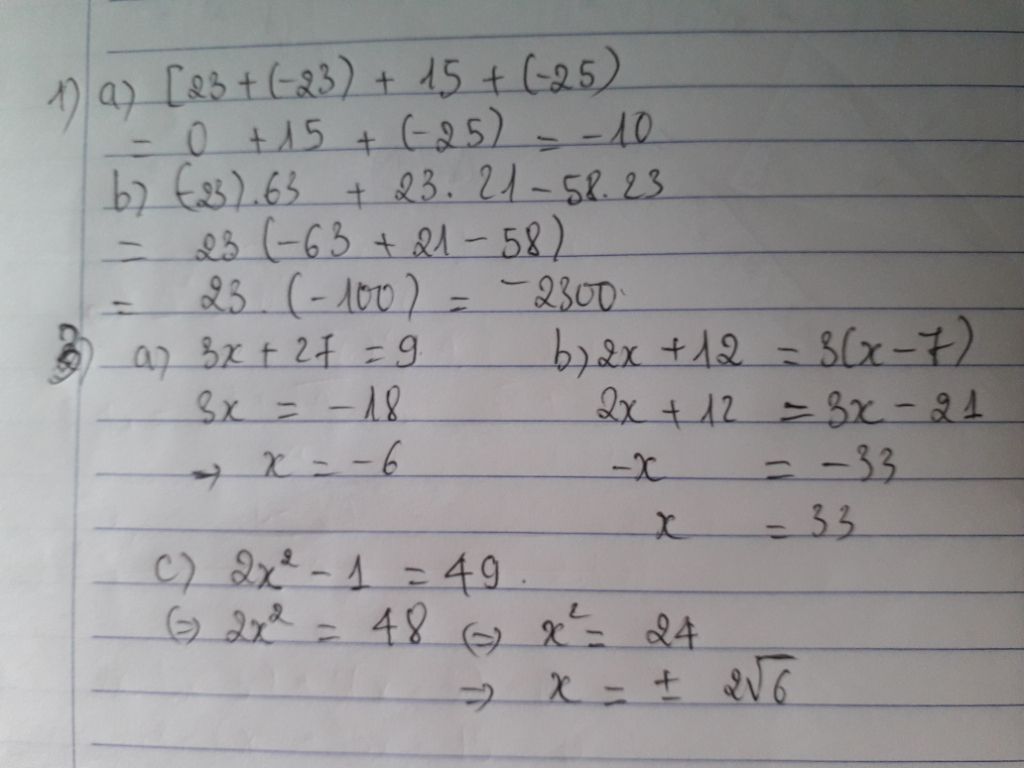 1) a) [23 + (-23) + 15 + (-25)
= 0 + 15 + (-25) = -10
b) (-23).63 + 23.21 - 58.23
= 23 (-63 + 21 - 58)
= 23.(-100) = -2300.
a) 3x + 27 = 9 b) 2x + 12 = 3(x - 7)
3x = -18 2x + 12 = 3x - 21
→ x = -6 -x = -33
x = 33
c) 2x² - 1 = 49.
(=) 2x² = 48 (=) x² = 24
=> x = ± 2√6